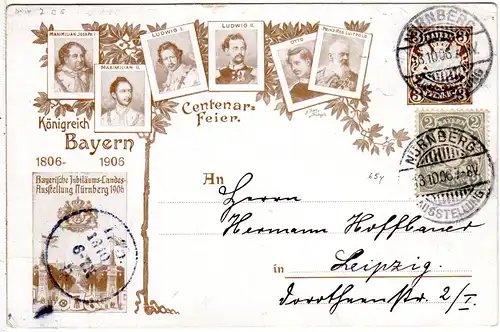 MAXIMILIAN JOSEPH I.
MAXIMILIAN II.
LUDWIG I.
LUDWIG II.
OTTO
PRINZ-REG. LUITPOLD
Centenar-
Feier.
Königreich
Bayern
1806- 1906
Bayerische Jubiläums-Landes-
Ausstellung Nürnberg 1906
NÜRNBERG
2
NÜRNBERG
13.10.06.
AUSSTELLUNG
An
Herrn Hermann Hoffbauer
in Leipzig.
Dorotheenstr. 2/I.